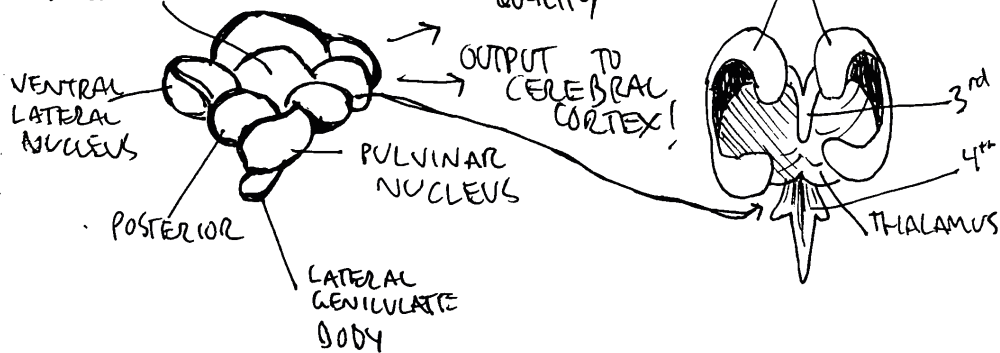 QUALITY
OUTPUT TO
CEREBRAL
CORTEX!
VENTRAL
LATERAL
NUCLEUS
PULVINAR
NUCLEUS
POSTERIOR
LATERAL
GENICULATE
BODY
3rd
4th
THALAMUS